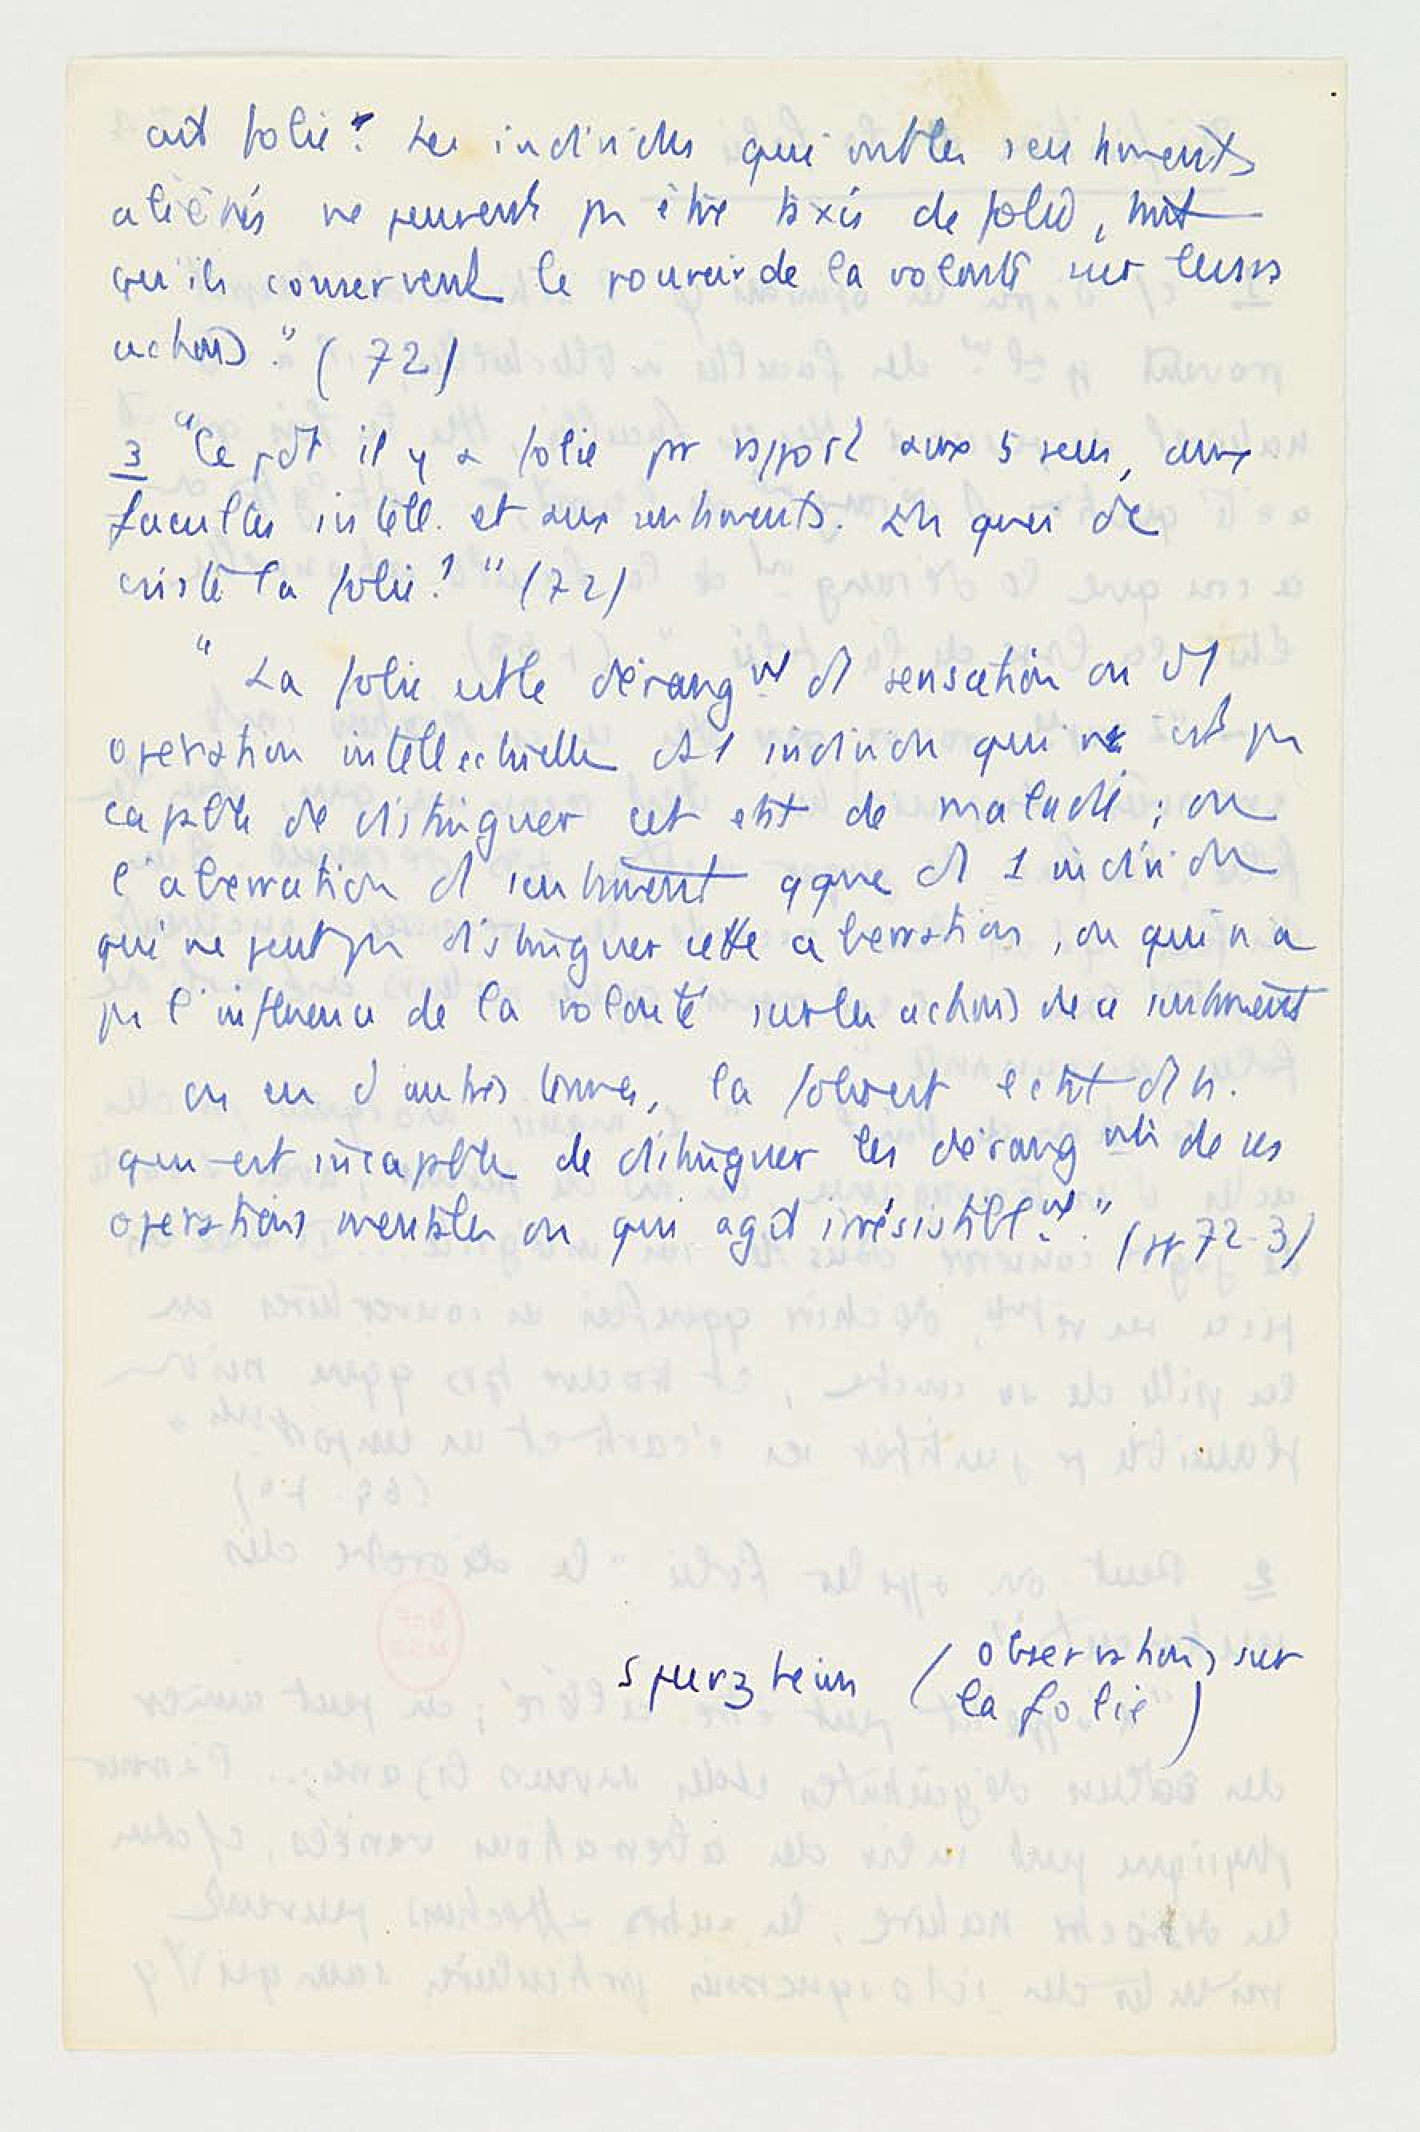 ait folie ? Les individus qui ont les sentiments
aliénés ne peuvent pas être taxés de folie, tant
qu'ils conservent le pouvoir de la volonté sur leurs
actions." (72)
3 "Cepdt il y a folie par rapport aux 5 sens, aux
facultés intell. et aux sentiments. En quoi
consiste la folie ? " (72)
" La folie est le dérangmt d'1 sensation ou d'1
opération intellectuelle ds 1 individu qui n'est pas
capable de distinguer cet état de maladie ; ou
l'aberration d'1 sentiment qque d'1 individu
qui ne peut pas distinguer cette aberration, ou qui n'a
pas l'influence de la volonté sur les actions de ce sentiment
ou en d'autres termes, la folie est l'état d'1 h.
qui est incapable de distinguer les dérangmts de ses
opérations mentales ou qui agit irrésistiblmt." (pp 72-3)
Spurzheim (Observations sur
la folie)